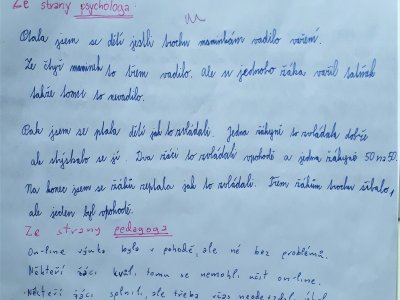 Ze strany psychologa
Ptala jsem se dětí jestli trochu maminkám vadilo vaření.
Ze čtyř maminek to třem vadilo. Ale u jednoho žáka vařil tatínek
takže tomu to nevadilo.
Pak jsem se ptala dětí jak to zvládali. Jedna žákyně to zvládala dobře
ale stýskalo se jí. Dva žáci to zvládali vpohodě a jedna žákyně 50 na 50.
Na konec jsem se žáků zeptala jak to zvládali. Třem žákům trochu
ale jeden byl vpohodě.
Ze strany pedagoga
On-line výuka byla v pohodě, ale ne bez problémů.
Někteří žáci kvůli tomu se nemohli učit on-line.
Někteří žáci splnili, ale třeba včas neodevzdali